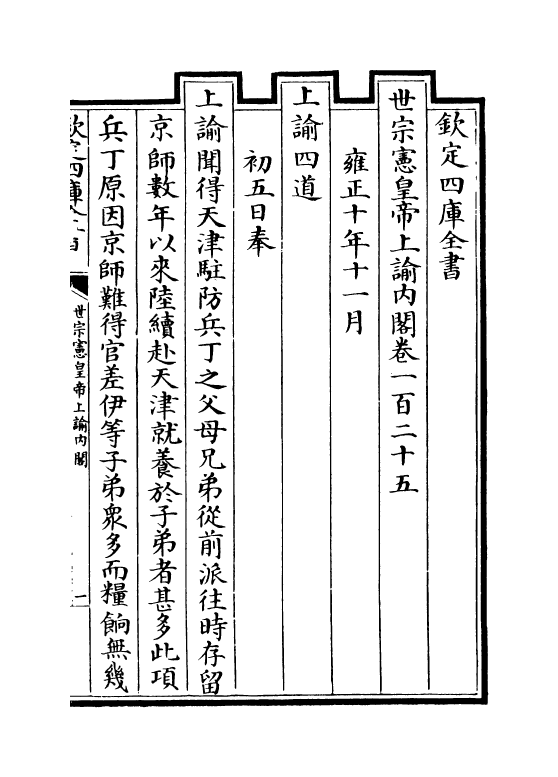 欽定四庫全書
世宗憲皇帝上諭內閣卷一百二十五
雍正十年十一月
上諭四道
初五日奉
上諭聞得天津駐防兵丁之父母兄弟從前派往時存留
京師數年以來陸續赴天津就養於子弟者甚多此項
兵丁原因京師難得官差伊等子弟衆多而糧餉無幾
欽定四庫全書
世宗憲皇帝上諭內閣
一